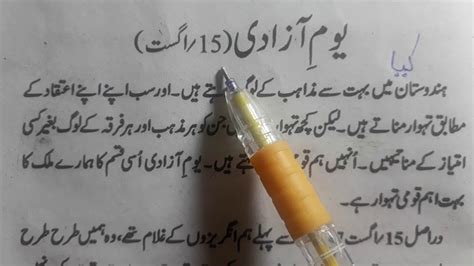 کیا
یومِ آزادی (15/اگست)
ہندوستان میں بہت سے مذاہب کے لوگ ہیں۔ اور سب اپنے اپنے اعتقاد کے
مطابق تہوار مناتے ہیں۔ لیکن کچھ تہوار جن کو ہر مذہب اور ہر فرقہ کے لوگ بغیر کسی
امتیاز کے مناتے ہیں۔ اُنہیں ہم قومی ہیں۔ یومِ آزادی اُسی قسم کا ہمارے ملک کا
بہت اہم قومی تہوار ہے۔
دراصل 15/اگست سے پہلے ہم انگریزوں کے غلام تھے، وہ ہمیں طرح طرح